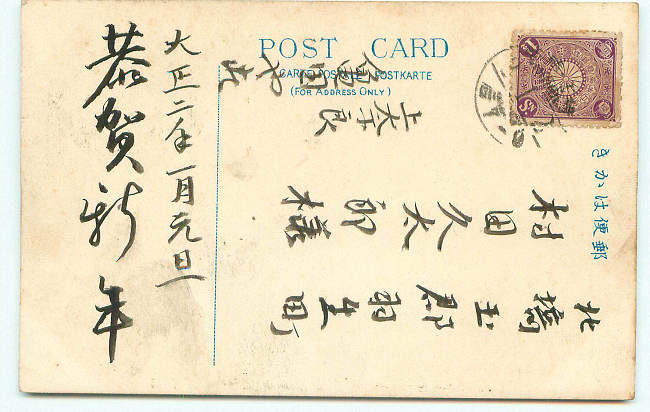 POST CARD
CARTE POSTALE POSTKARTE
(FOR ADDRESS ONLY)
郵便はかき
北埼玉郡羽生町
村田久太郎様
大正二年一月元旦
恭賀新年